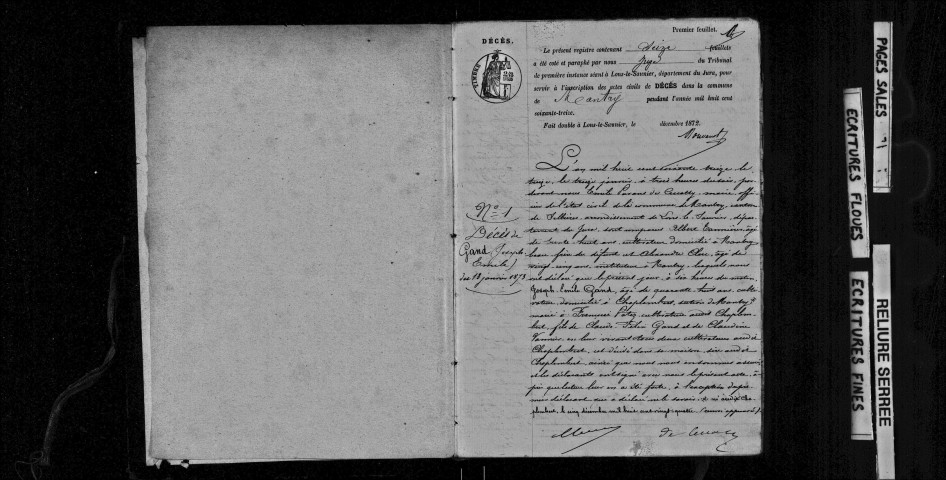 Premier feuillet.
DÉCÈS.
Le présent registre contenant seize feuillets
a été coté et paraphé par nous Juge du Tribunal
de première instance séant à Lons-le-Saunier, département du Jura, pour
servir à l'inscription des actes civils de DÉCÈS dans la commune
de Mantry pendant l'année mil huit cent
soixante-treize.
Fait double à Lons-le-Saunier, le décembre 1872.
TIMBRE
N° 1
Décès de
Gand (Joseph
Emile)
du 13 janvier 1873
L'an mil huit cent soixante treize le
treize, le treize janvier, à trois heures du soir, par
devant nous Emile maire offi
cier de l'état civil de la commune de Mantry, canton
de Sellières arrondissement de Lons le Saunier, dépar
tement du Jura, sont comparus Albert Vannier, âgé
de trente huit ans, cultivateur domicilié à Mantry
beau frère du défunt et Alexandre Clerc, âgé de
vingt cinq ans, instituteur à Mantry, lesquels nous
ont déclaré que le présent jour, à six heures du matin
Joseph Emile Gand, âgé de quarante huit ans, culti
vateur, domicilié à Chaplambert, section de Mantry,
marié à Cultivatrice audit Chaplam
bert, fils de Claude Félix Gand et de Claudine
Vannier en leur vivant tous deux cultivateurs audit
Chaplambert, est décédé dans sa maison, sise audit
Chaplambert ainsi que nous nous en sommes assuré
et les déclarants ont signé avec nous le présent acte, a
près que lecture leur en a été faite, à l'exception du pre
mier déclarant qui a déclaré ne le savoir.
plambert, le cinq décembre mil huit cent vingt quatre
PAGES SALES
ECRITURES FLOUES
ECRITURES FINES
RELIURE SERREE